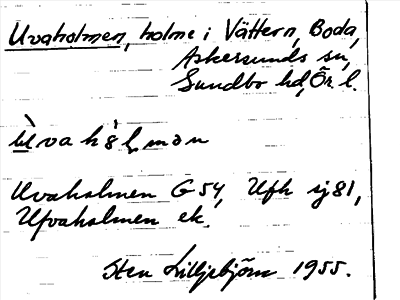 Uvaholmen, holme i Vättern, Boda,
Askersunds sn,
Sundbo hd, Ör. l.
Uvaholmen G54, Ufh sj81,
Ufvaholmen ek.
Sten Lilljebjörn 1955.